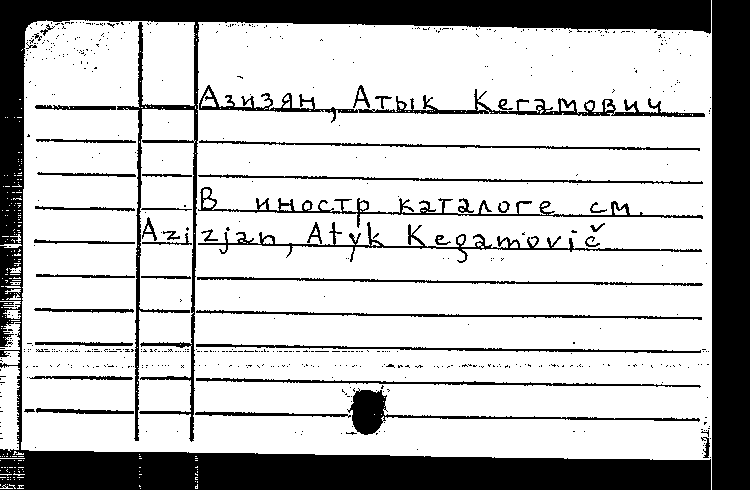 Азизян, Атык Кегамович
В иностр каталоге см.
Azizjan, Atyk Kegamovič